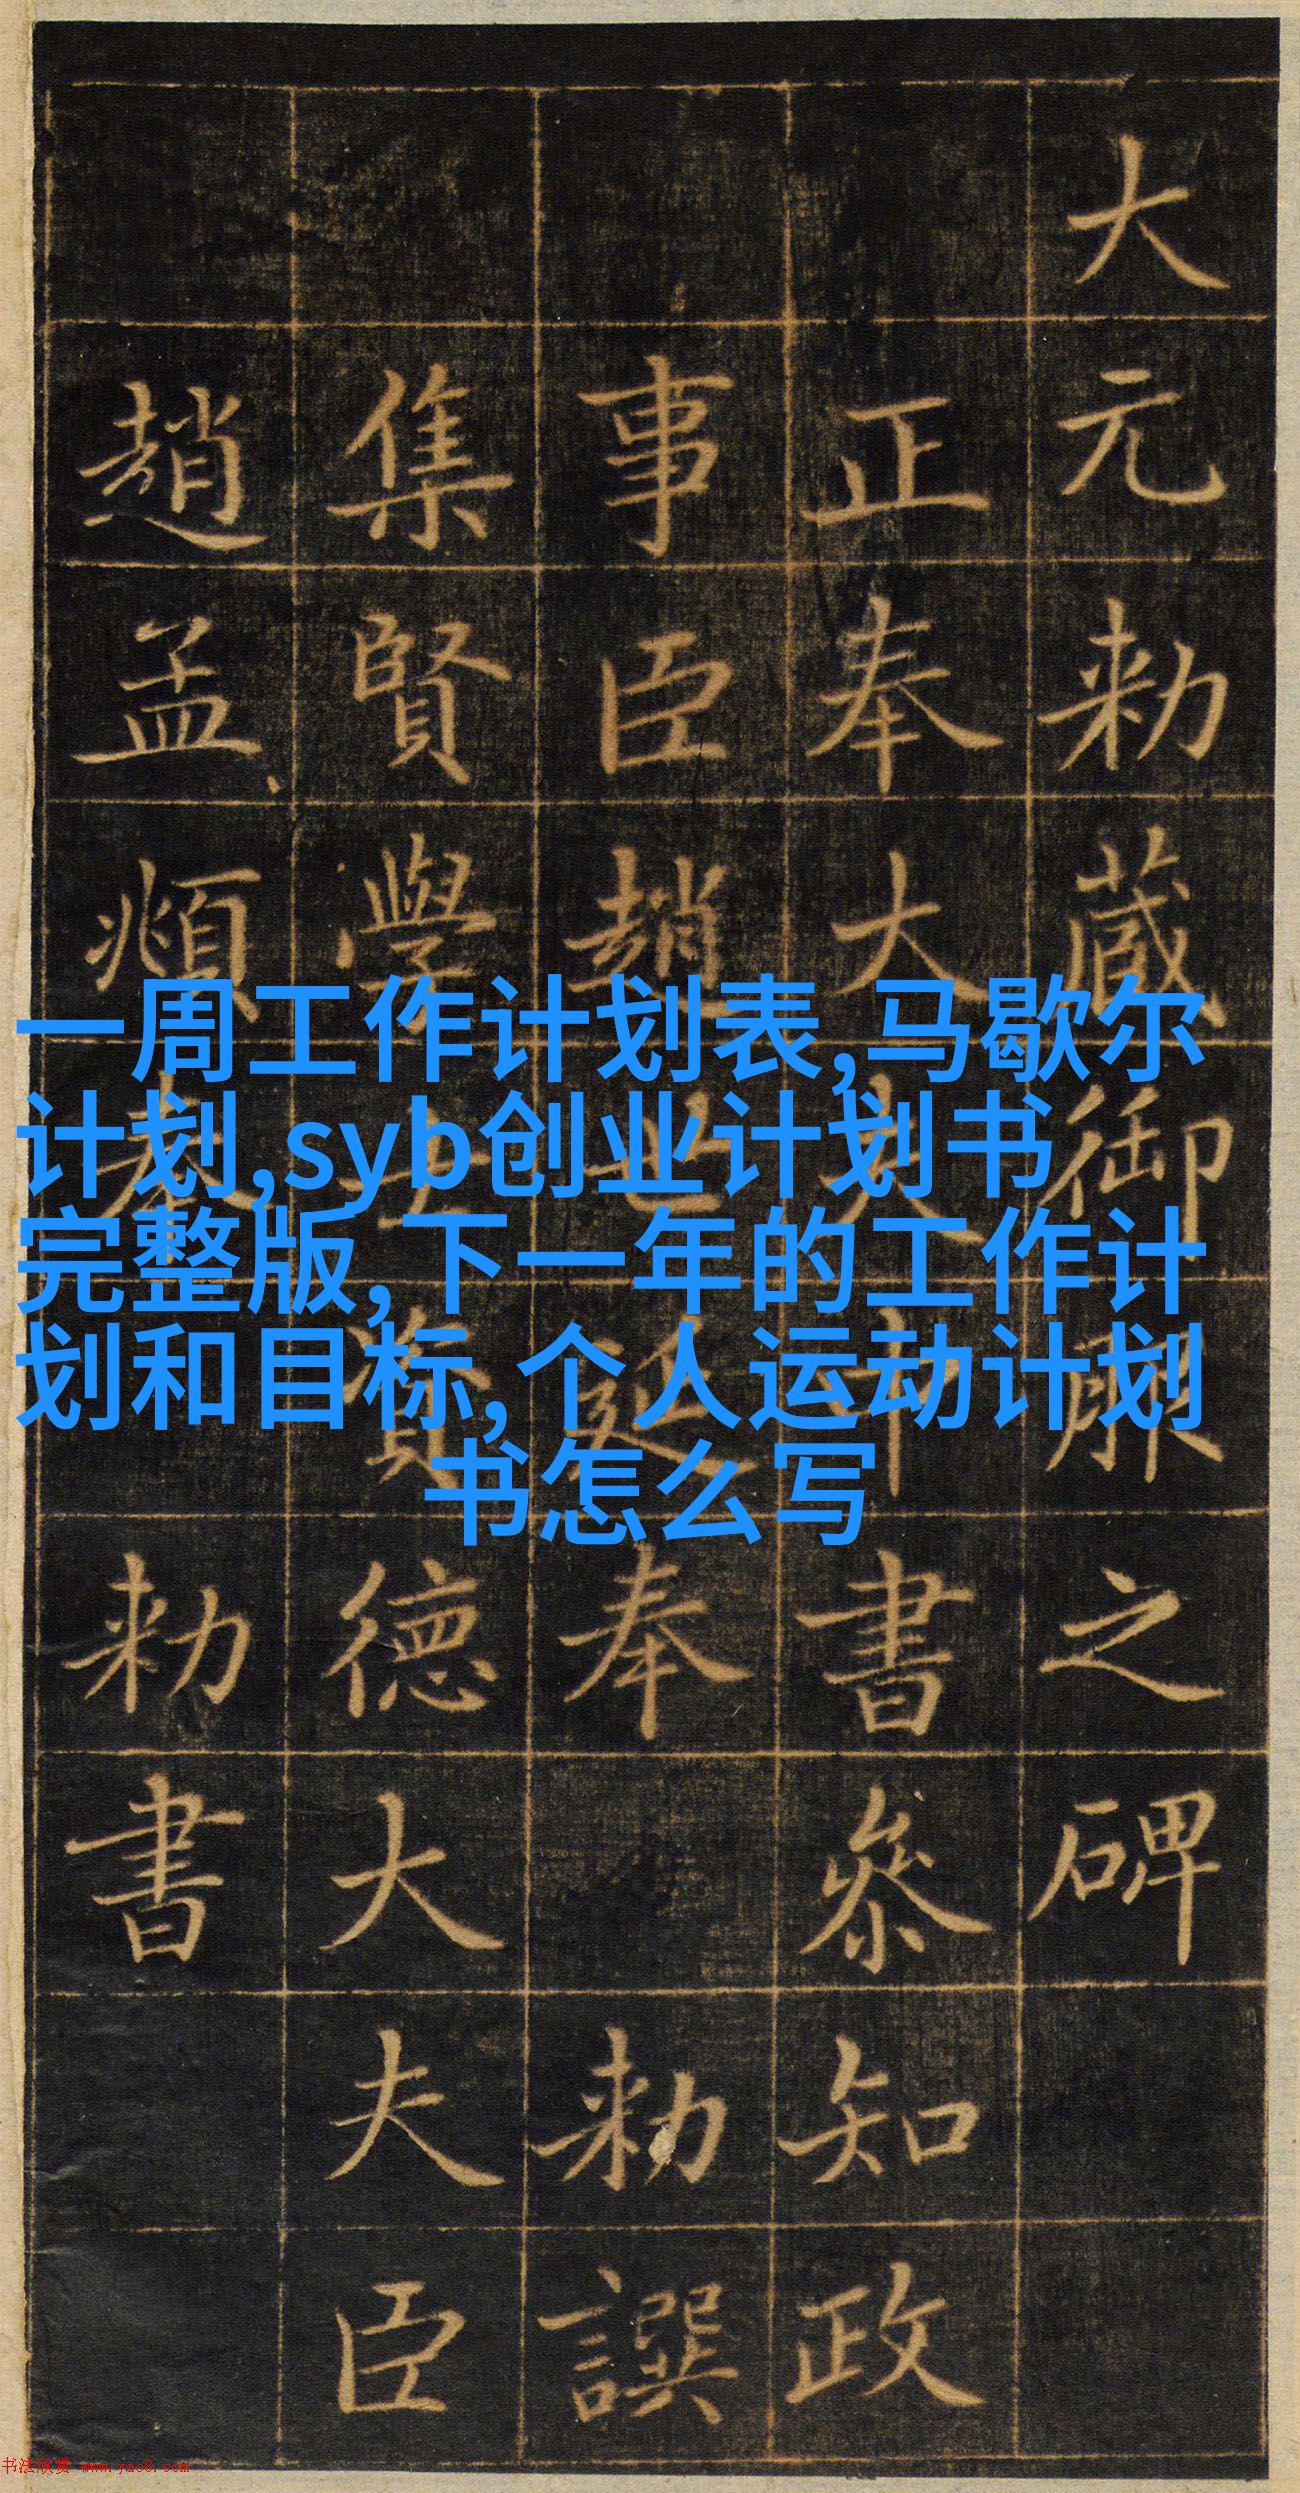 大元勑蔵御服之碑
正奉大夫中書叅知政
事臣趙世延奉 勑譔
集賢學士資德大夫臣
趙孟頫奉 勑書
一周工作计划表,马歇尔
计划,syb创业计划书
完整版,下一年的工作计
划和目标,个人运动计划
书怎么写
书法欣赏 www.yac8.com